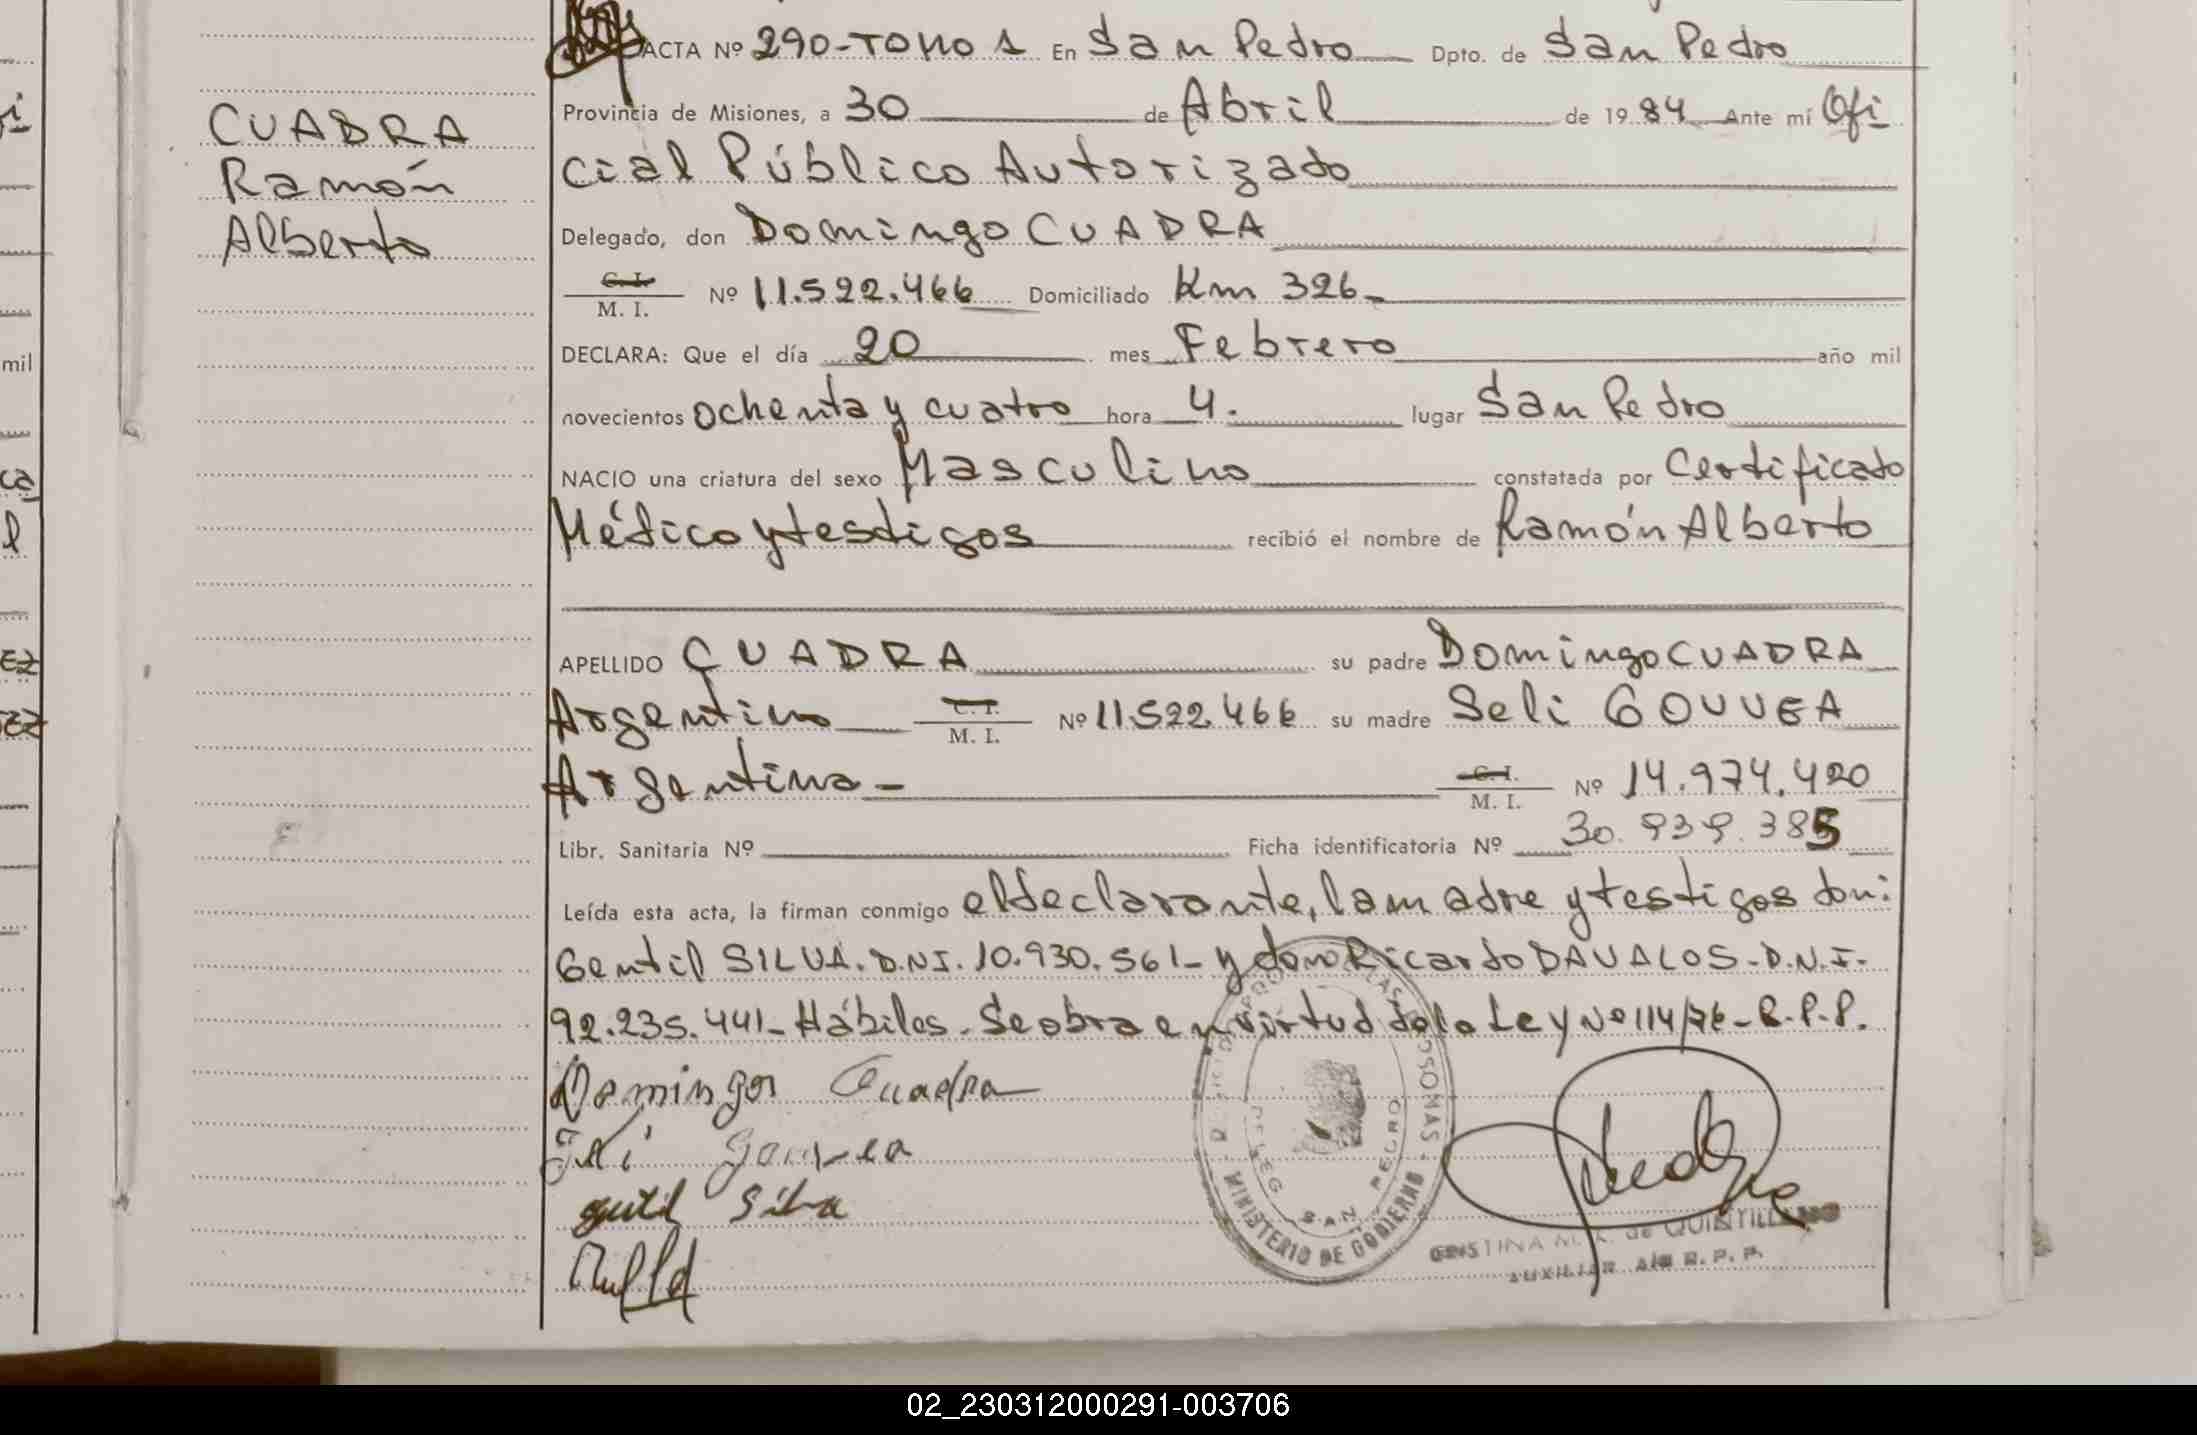 ACTA Nº 290-TOMO 1 En San Pedro Dpto. de San Pedro
CUADRA
Ramón
Alberto
Provincia de Misiones, a 30 de Abril de 1984 Ante mí Ofi
cial Público Autorizado
Delegado, don Domingo CUADRA
C. I.
M. I. Nº 11.522.466 Domiciliado Km 326-
DECLARA: Que el día 20 mes Febrero año mil
novecientos ochenta y cuatro hora 4. lugar San Pedro
NACIO una criatura del sexo Masculino constatada por Certificato
Médico y testigos recibió el nombre de Ramón Alberto
APELLIDO CUADRA su padre Domingo CUADRA
Argentino C. I. M. I. Nº 11.522.466 su madre Seli GOUVEA
Argentina- C. I. M. I. Nº 14.974.420
Libr. Sanitaria Nº Ficha identificatoria Nº 30.939.385
Leída esta acta, la firman conmigo el declarante, la madre y testigos don:
Gentil SILVA. D.N.I. 10.930.561- y don Ricardo DAVALOS-D.N.I-
92.235.441- Hábiles. Se obra en virtud de la Ley Nº 114/76- R.P.P.
Domingos Cuadra
Gouvea
Silva
MINISTERIO DE GOBIERNO
SAN PEDRO
CRISTINA M. de QUINTILLANO
AUXILIAR R. P. P.
mil
ca
l
EZ
02_230312000291-003706